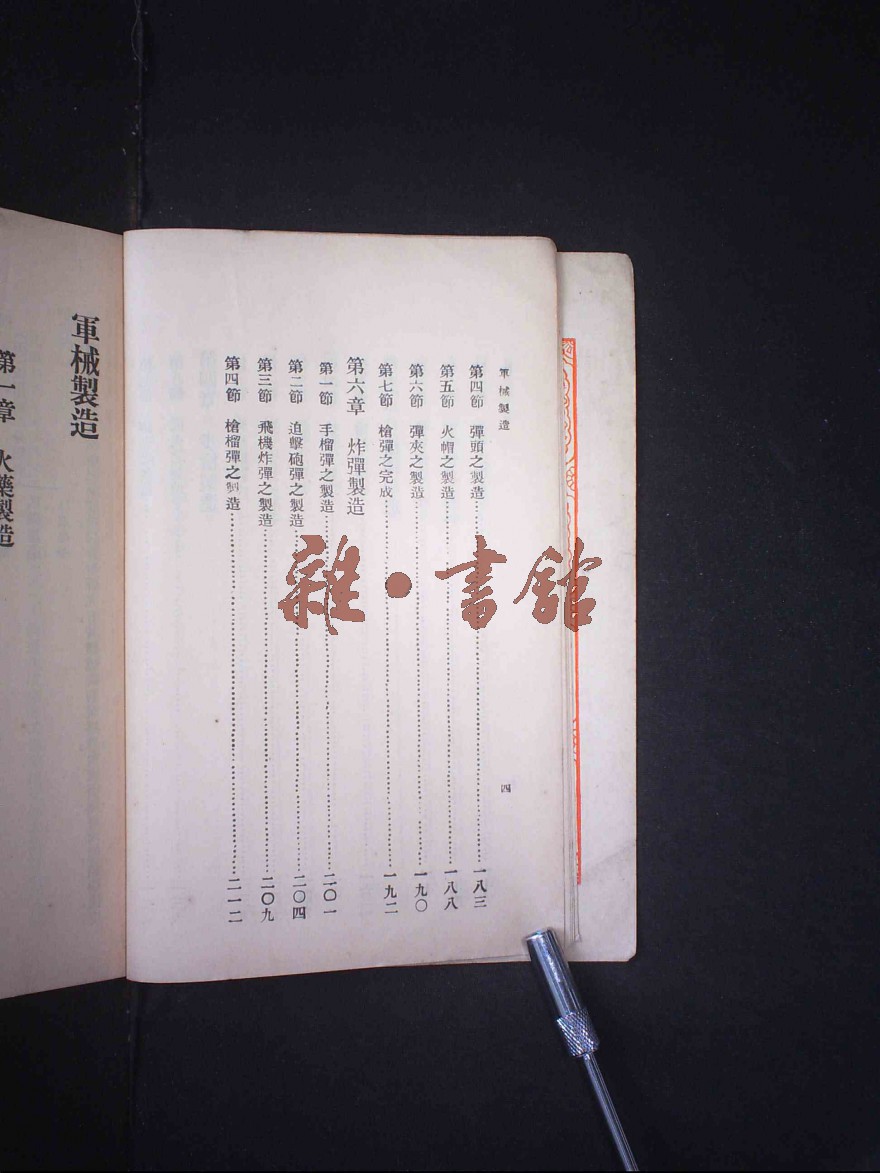 軍械製造
四
第四節 彈頭之製造 一八三
第五節 火帽之製造 一八八
第六節 彈夾之製造 一九〇
第七節 槍彈之完成 一九二
第六章 炸彈製造
第一節 手榴彈之製造 二〇一
第二節 迫擊砲彈之製造 二〇四
第三節 飛機炸彈之製造 二〇九
第四節 槍榴彈之製造 二一二
軍械製造
第一章 火藥製造
雜·書館